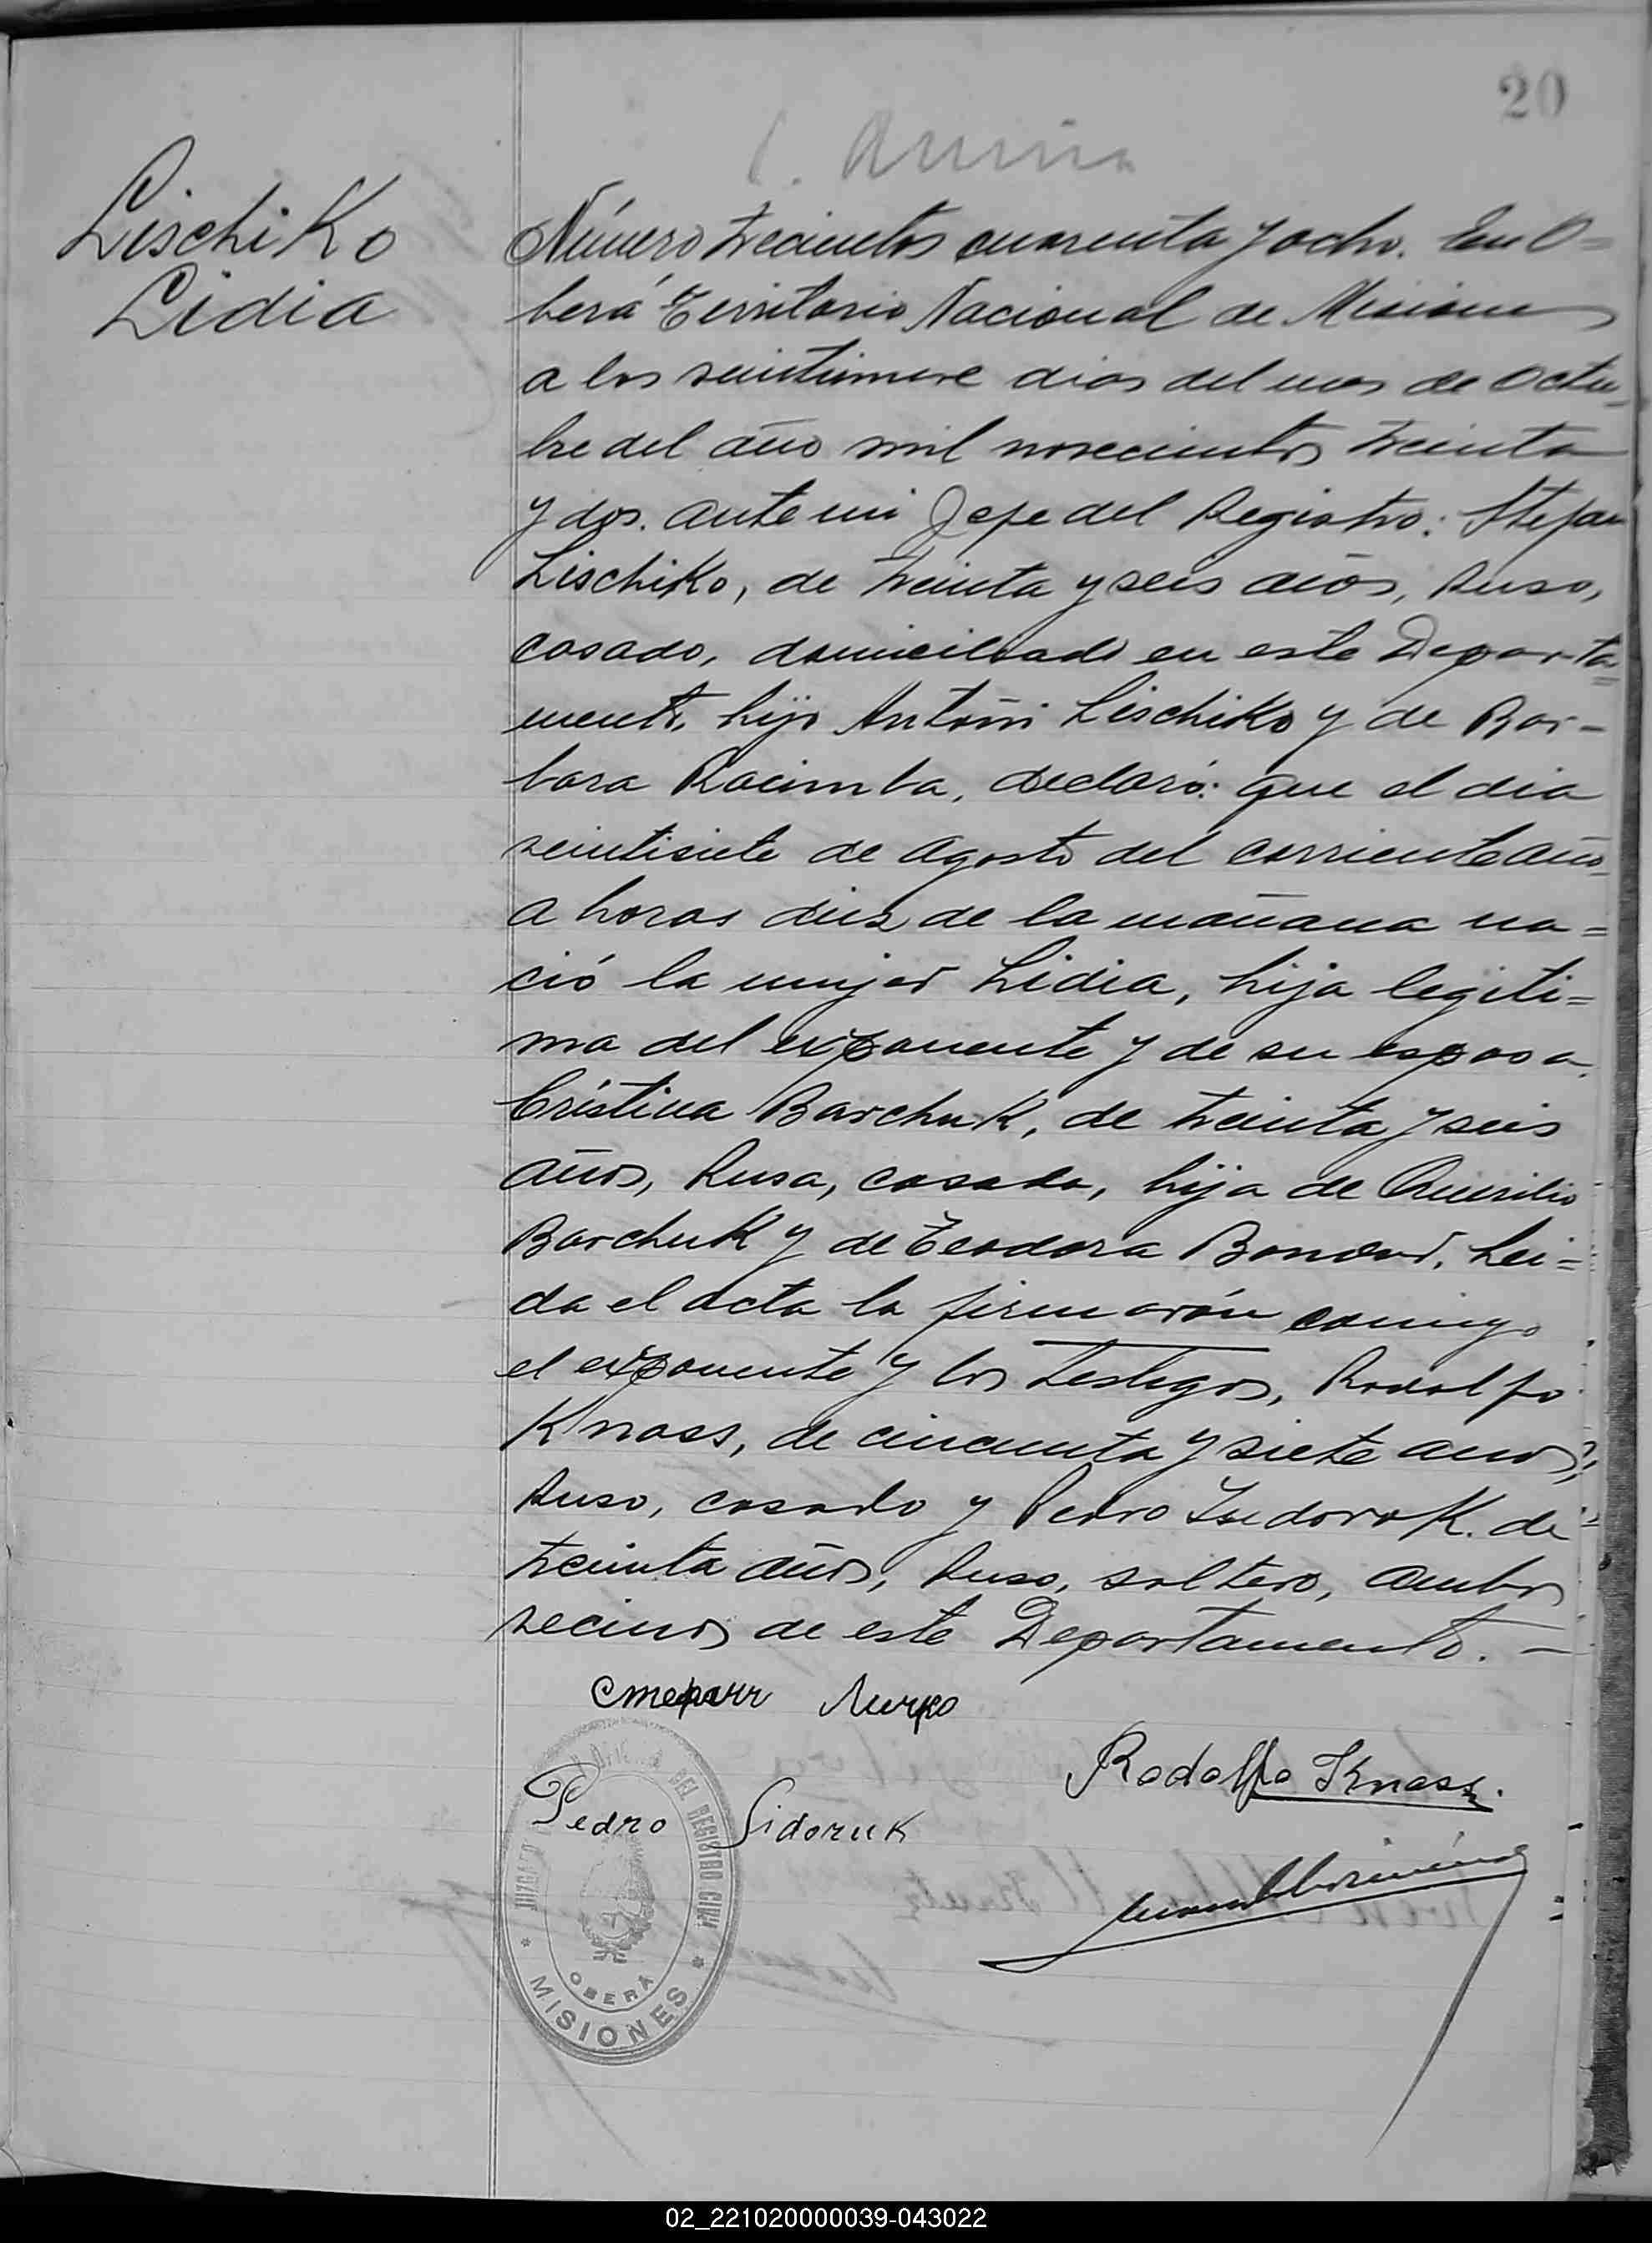 20
Lischiko
Lidia
Número trecientos cuarenta y ocho. En O=
berá Territorio Nacional de Misiones
a los veintinueve dias del mes de Octu-
bre del año mil novecientos treinta
y dos. ante mi Jefe del Registro: Stefan
Lischiko, de treinta y seis años, Ruso,
casado, domiciliado en este Departa=
mento, hijo Antoñi Lischiko y de Bar-
bara Racimba, declaró: que el dia
veintisiete de Agosto del corriente año
a horas diez de la mañana na=
ció la mujer Lidia, hija legiti=
ma del exponente y de su esposa
Cristina Barchuk, de treinta y seis
años, Rusa, casada, hija de
Barchuk y de Teodora Bondar. Lei=
da el acta la firmarón comigo
el exponente y los testigos, Rodolfo
Knass, de cincuenta y siete años,
Ruso, casado y Pedro K. de
treinta años, Ruso, soltero, ambos
vecinos de este Departamento. -
Pedro Sidoruk
Rodolfo Knass.
JUZGADO OFICINA DEL REGISTRO CIVIL
OBERÁ
* MISIONES *
02_221020000039-043022